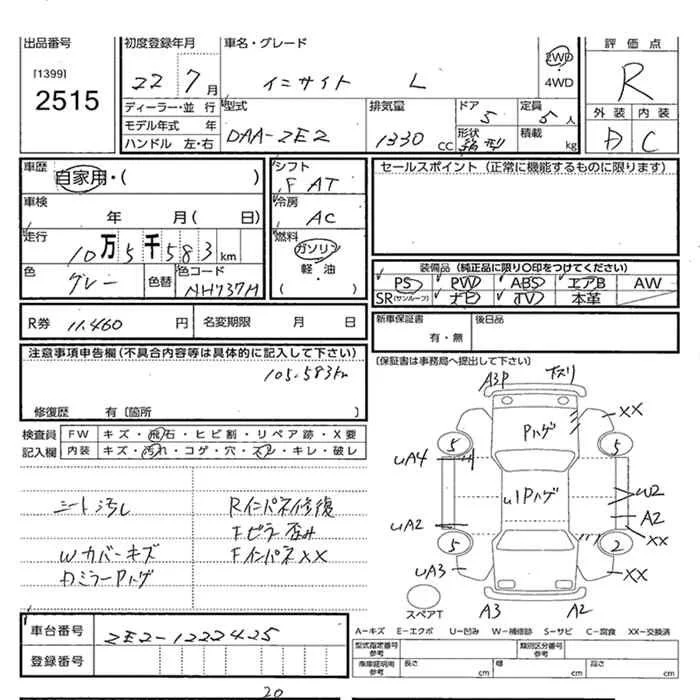 出品番号
[1399]
2515
初度登録年月
22 7月
車名・グレード
インサイト L
2WD
・
4WD
評価点
R
外装 内装
D C
ディーラー・並行
モデル年式 年
ハンドル 左・右
型式
DAA-ZE2
排気量
1330 cc
ドア
5
形状
箱型
定員
5人
積載
kg
車歴
自家用・( )
車検
年 月( 日)
走行
10万5千583km
色
グレー
色替
色コード
NH737M
シフト
F AT
冷房
AC
燃料
ガソリン
軽・油
( )
セールスポイント(正常に機能するものに限ります)
装備品(純正品に限り○印をつけてください)
PS PW ABS エアB AW
SR(サンルーフ) ナビ TV 本革
R券 11.460 円 名変期限 月 日
新車保証書
有・無
後日品
(保証書は事務局へ提出して下さい)
注意事項申告欄(不具合内容等は具体的に記入して下さい)
105.583km
修復歴 有〔箇所 〕
検査員
記入欄
FW キズ・飛石・ヒビ割・リペア跡・X要
内装 キズ・汚れ・コゲ・穴・スレ・キレ・破レ
シート汚し
Wカバーキズ
DミラーPハゲ
Rインパネ修復
Fピラー歪み
FインパネXX
A3P
下スリ
Pハゲ
XX
5
5
UA4
U1Pハゲ
W2
A2
UA2
XX
5
2
UA3
XX
スペアT
A3
A2
A-キズ E-エクボ U-凹み W-補修跡 S-サビ C-腐食 XX-交換済
車台番号
ZE2-1222425
登録番号
型式指定番号
参考
類別区分番号
参考
車庫証明用
参考
長さ cm
幅 cm
高さ cm
20